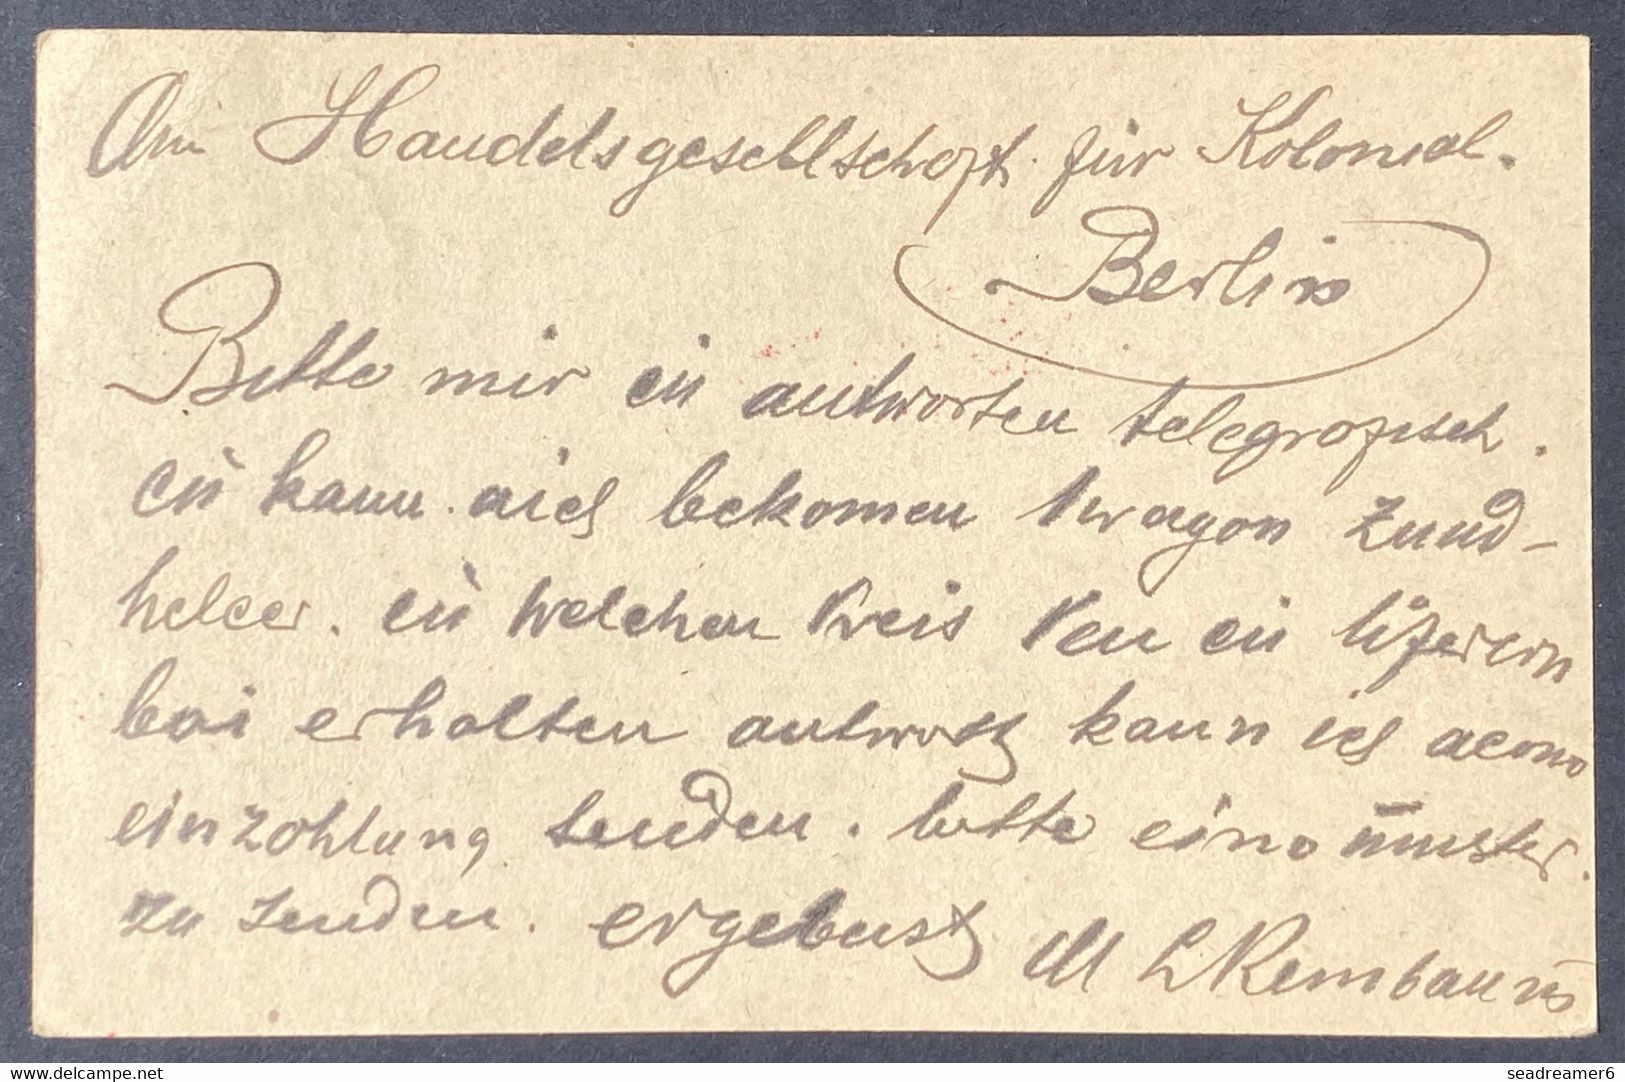 An Handelsgesellschaft für Kolonial.
Berlin
Bitte mir zu antworten telegrafisch.
zu kann ich bekomen 1 wagon Zund-
helcer. zu welchen Preis Ven zu liferern
bai erholten antwort kann ich acono
einzohlung senden. bitte eine muster.
zu senden. ergebenst M L Rembaum
www.delcampe.net
seadreamer6